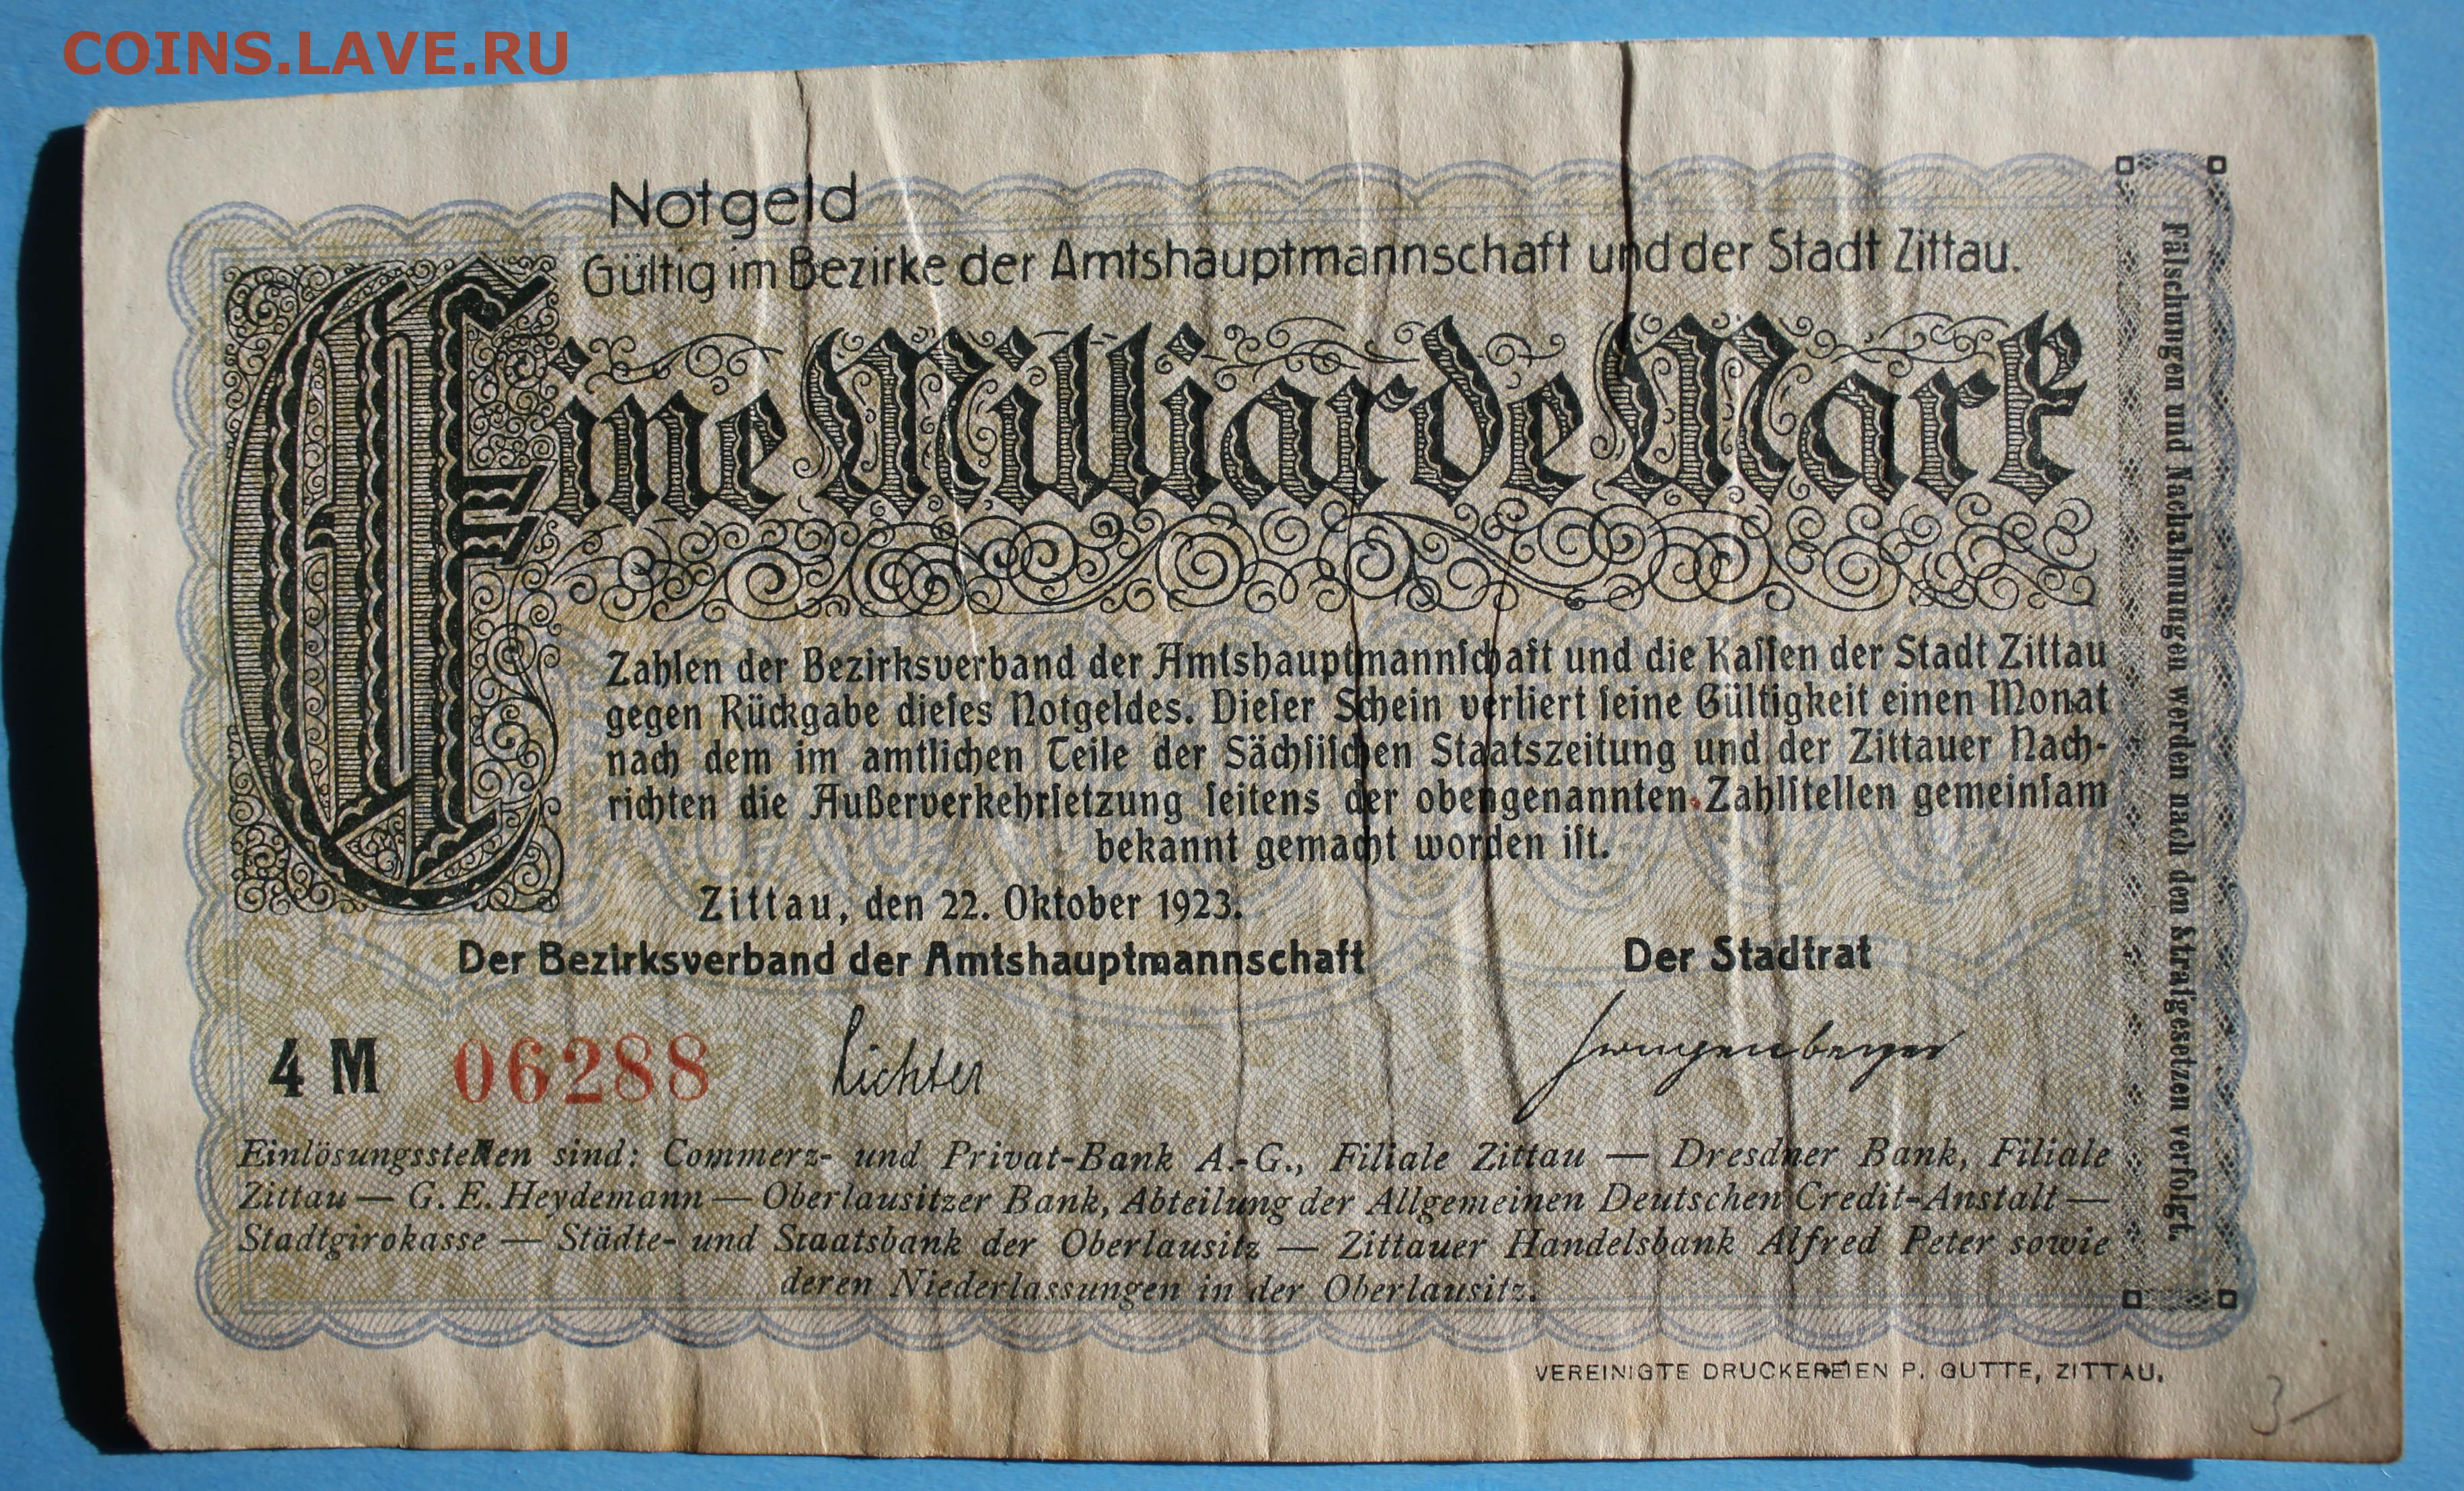 COINS.LAVE.RU
Notgeld
Gültig im Bezirke der Amtshauptmannschaft und der Stadt Zittau.
Eine Milliarde Mark
Zahlen der Bezirksverband der Amtshauptmannſchaft und die Kaſſen der Stadt Zittau
gegen Rückgabe dieſes Notgeldes. Dieſer Schein verliert ſeine Gültigkeit einen Monat
nach dem im amtlichen Teile der Sächſiſchen Staatszeitung und der Zittauer Nach-
richten die Außerverkehrſetzung ſeitens der obengenannten Zahlſtellen gemeinſam
bekannt gemacht worden iſt.
Zittau, den 22. Oktober 1923.
Der Bezirksverband der Amtshauptmannschaft
Der Stadtrat
4 M 06288
Einlösungsstellen sind: Commerz- und Privat-Bank A.-G., Filiale Zittau — Dresdner Bank, Filiale
Zittau — G. E. Heydemann — Oberlausitzer Bank, Abteilung der Allgemeinen Deutschen Credit-Anstalt —
Stadtgirokasse — Städte- und Staatsbank der Oberlausitz — Zittauer Handelsbank Alfred Peter sowie
deren Niederlassungen in der Oberlausitz.
Fälschungen und Nachahmungen werden nach den Strafgesetzen verfolgt.
VEREINIGTE DRUCKEREIEN P. GUTTE, ZITTAU.
3 —